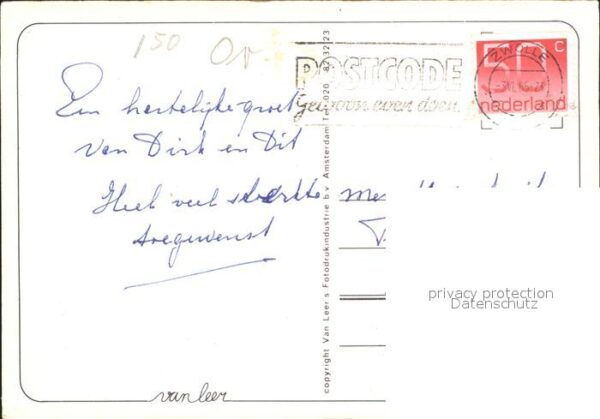 150 Or.
POSTCODE
Gewoon even doen.
ZWOLLE
50 C
nederland
Een hartelijke groet
van Dirk en Dit
Heel veel sterkte
toegewenst
copyright Van Leer's Fotodrukindustrie b.v. Amsterdam Tel. 020 - 82 32 23
privacy protection
Datenschutz
van leer